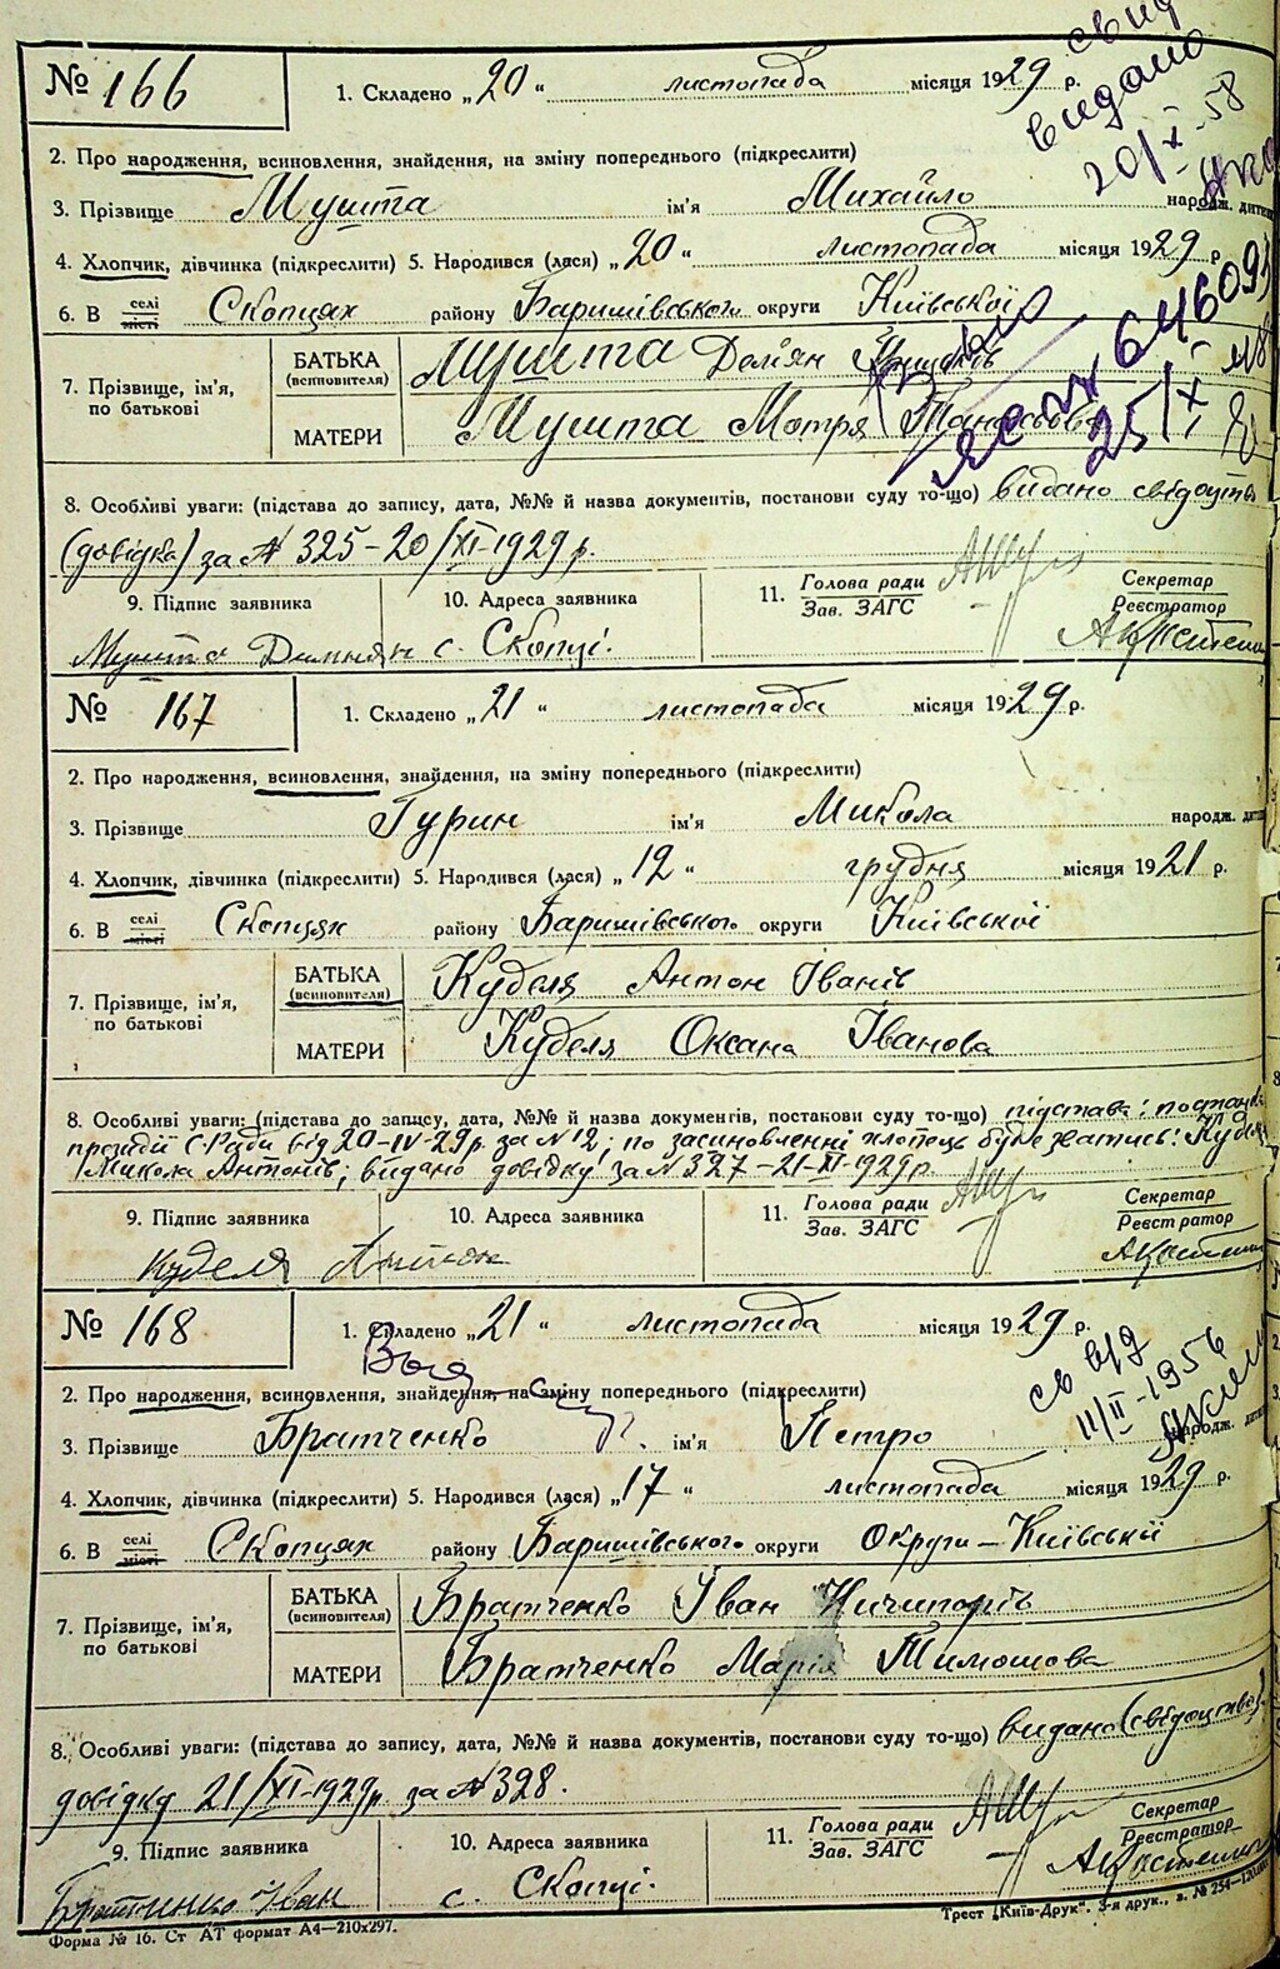 № 166
1. Складено „20“ листопада місяця 1929 р.
свид
видано
20/X-58
2. Про народження, всиновлення, знайдення, на зміну попереднього (підкреслити)
3. Прізвище Мушта ім'я Михайло народж. дитини
4. Хлопчик, дівчинка (підкреслити) 5. Народився (лася) „20“ листопада місяця 1929 р
6. В селі місті Скопцях району Баришівського округи Київської
7. Прізвище, ім'я, по батькові
БАТЬКА (всиновителя) Мушта Дем'ян
МАТЕРИ Мушта Мотря
25/XI
8. Особливі уваги: (підстава до запису, дата, №№ й назва документів, постанови суду то-що) видано свідоцтво
(довідка) за № 325-20/XI-1929 р.
9. Підпис заявника
10. Адреса заявника
11. Голова ради
Зав. ЗАГС
Секретар
Реєстратор
Мушта Димнян с. Скопці.
№ 167
1. Складено „21“ листопада місяця 1929 р.
2. Про народження, всиновлення, знайдення, на зміну попереднього (підкреслити)
3. Прізвище Гурин ім'я Микола народж. дитини
4. Хлопчик, дівчинка (підкреслити) 5. Народився (лася) „12“ грудня місяця 1921 р.
6. В селі місті Скопцях району Баришівського округи Київської
7. Прізвище, ім'я, по батькові
БАТЬКА (всиновителя) Куделя Антон Іванів
МАТЕРИ Куделя Оксана Іванова
8. Особливі уваги: (підстава до запису, дата, №№ й назва документів, постанови суду то-що) підстава: постанова
президії С-Ради від 20-IV-29 р. за № 12; по засиновленні хлопець буде зватись: Куделя
Микола Антонів; видано довідку за № 327-21-XI-1929 р.
9. Підпис заявника
10. Адреса заявника
11. Голова ради
Зав. ЗАГС
Секретар
Реєстратор
Куделя Антон
№ 168
1. Складено „21“ листопада місяця 1929 р.
св вид
11/II-1956
2. Про народження, всиновлення, знайдення, на зміну попереднього (підкреслити)
3. Прізвище Братченко ім'я Петро народж. дитини
4. Хлопчик, дівчинка (підкреслити) 5. Народився (лася) „17“ листопада місяця 1929 р.
6. В селі місті Скопцях району Баришівського округи Округи – Київській
7. Прізвище, ім'я, по батькові
БАТЬКА (всиновителя) Братченко Іван Ничипорів
МАТЕРИ Братченко Марія Тимошова
8. Особливі уваги: (підстава до запису, дата, №№ й назва документів, постанови суду то-що) видано (свідоцтво)
довідку 21/XI-1929 р за № 328.
9. Підпис заявника
10. Адреса заявника
11. Голова ради
Зав. ЗАГС
Секретар
Реєстратор
Братченко Іван с. Скопці.
Форма № 16. Ст АТ формат А4—210х297.
Трест „Київ-Друк“. 3-я друк., з. № 254—